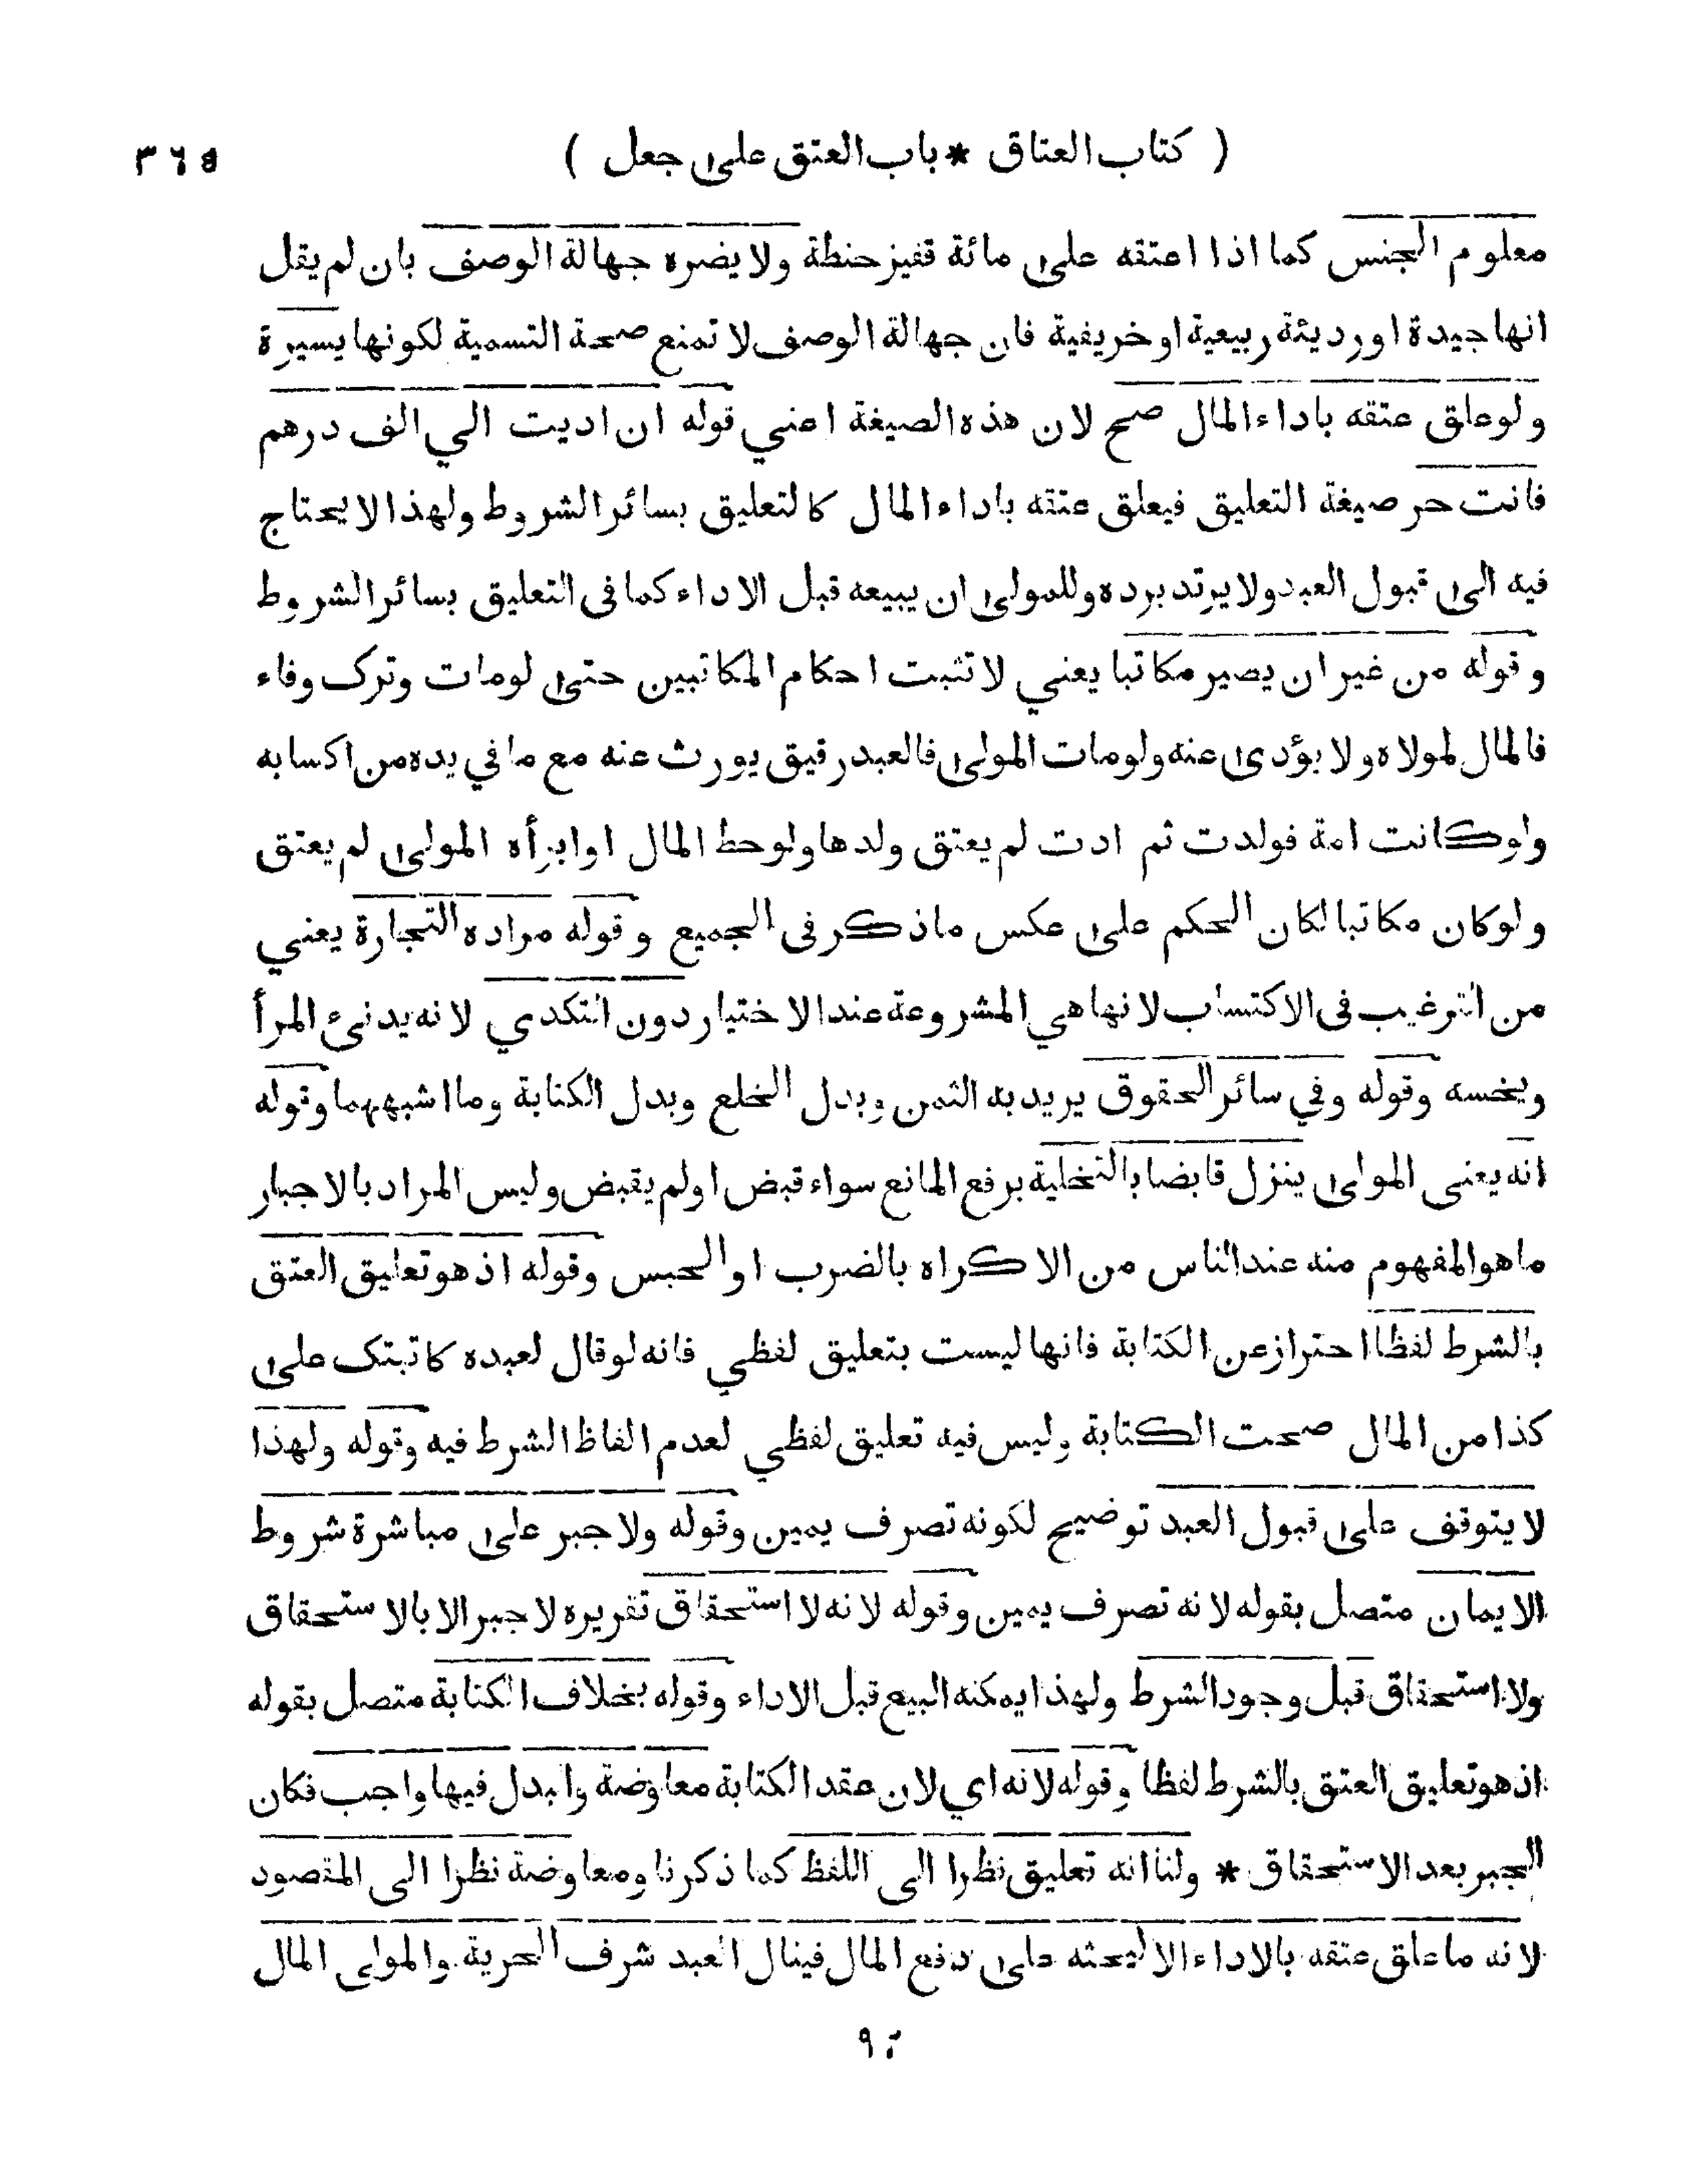 ( كتاب العتاق * باب العتق على جعل ) ٣٦٥
معلوم الجنس كما اذا اعتقه على مائة قفيز حنطة ولا يضره جهالة الوصف بان لم يقل
انها جيدة او رديئة ربيعية او خريفية فان جهالة الوصف لا تمنع صحة التسمية لكونها يسيرة
ولو علق عتقه باداء المال صح لان هذه الصيغة اعني قوله ان اديت الي الف درهم
فانت حر صيغة التعليق فيعلق عتقه باداء المال كالتعليق بسائر الشروط ولهذا لا يحتاج
فيه الى قبول العبد ولا يرتد برده وللمولى ان يبيعه قبل الاداء كما فى التعليق بسائر الشروط
وقوله من غير ان يصير مكاتبا يعني لا تثبت احكام المكاتبين حتى لو مات وترك وفاء
فالمال لمولاه ولا يؤدى عنه ولو مات المولى فالعبد رقيق يورث عنه مع ما في يده من اكسابه
ولو كانت امة فولدت ثم ادت لم يعتق ولدها ولو حط المال او ابرأه المولى لم يعتق
ولو كان مكاتبا لكان الحكم على عكس ما ذكر فى الجميع وقوله مراده التجارة يعني
من الترغيب فى الاكتساب لانها هي المشروعة عند الاختيار دون التكدي لانه يدنئ المرأ
ويخسه وقوله وفي سائر الحقوق يريد به الثمن وبدل الخلع وبدل الكتابة وما اشبههما وقوله
انه يعنى المولى ينزل قابضا بالتخلية برفع المانع سواء قبض او لم يقبض وليس المراد بالاجبار
ما هو المفهوم منه عند الناس من الاكراه بالضرب او الحبس وقوله اذ هو تعليق العتق
بالشرط لفظا احتراز عن الكتابة فانها ليست بتعليق لفظي فانه لو قال لعبده كاتبتك على
كذا من المال صحت الكتابة وليس فيه تعليق لفظي لعدم الفاظ الشرط فيه وقوله ولهذا
لا يتوقف على قبول العبد توضيح لكونه تصرف يمين وقوله ولا جبر على مباشرة شروط
الايمان متصل بقوله لانه تصرف يمين وقوله لانه لا استحقاق تقريره لا جبر الا بالاستحقاق
ولا استحقاق قبل وجود الشرط ولهذا يمكنه البيع قبل الاداء وقوله بخلاف الكتابة متصل بقوله
اذ هو تعليق العتق بالشرط لفظا وقوله لانه اي لان عقد الكتابة معاوضة والبدل فيها واجب فكان
الجبر بعد الاستحقاق * ولنا انه تعليق نظرا الى اللفظ كما ذكرنا ومعاوضة نظرا الى المقصود
لانه ما علق عتقه بالاداء الا ليحثه على دفع المال فينال العبد شرف الحرية والمولى المال